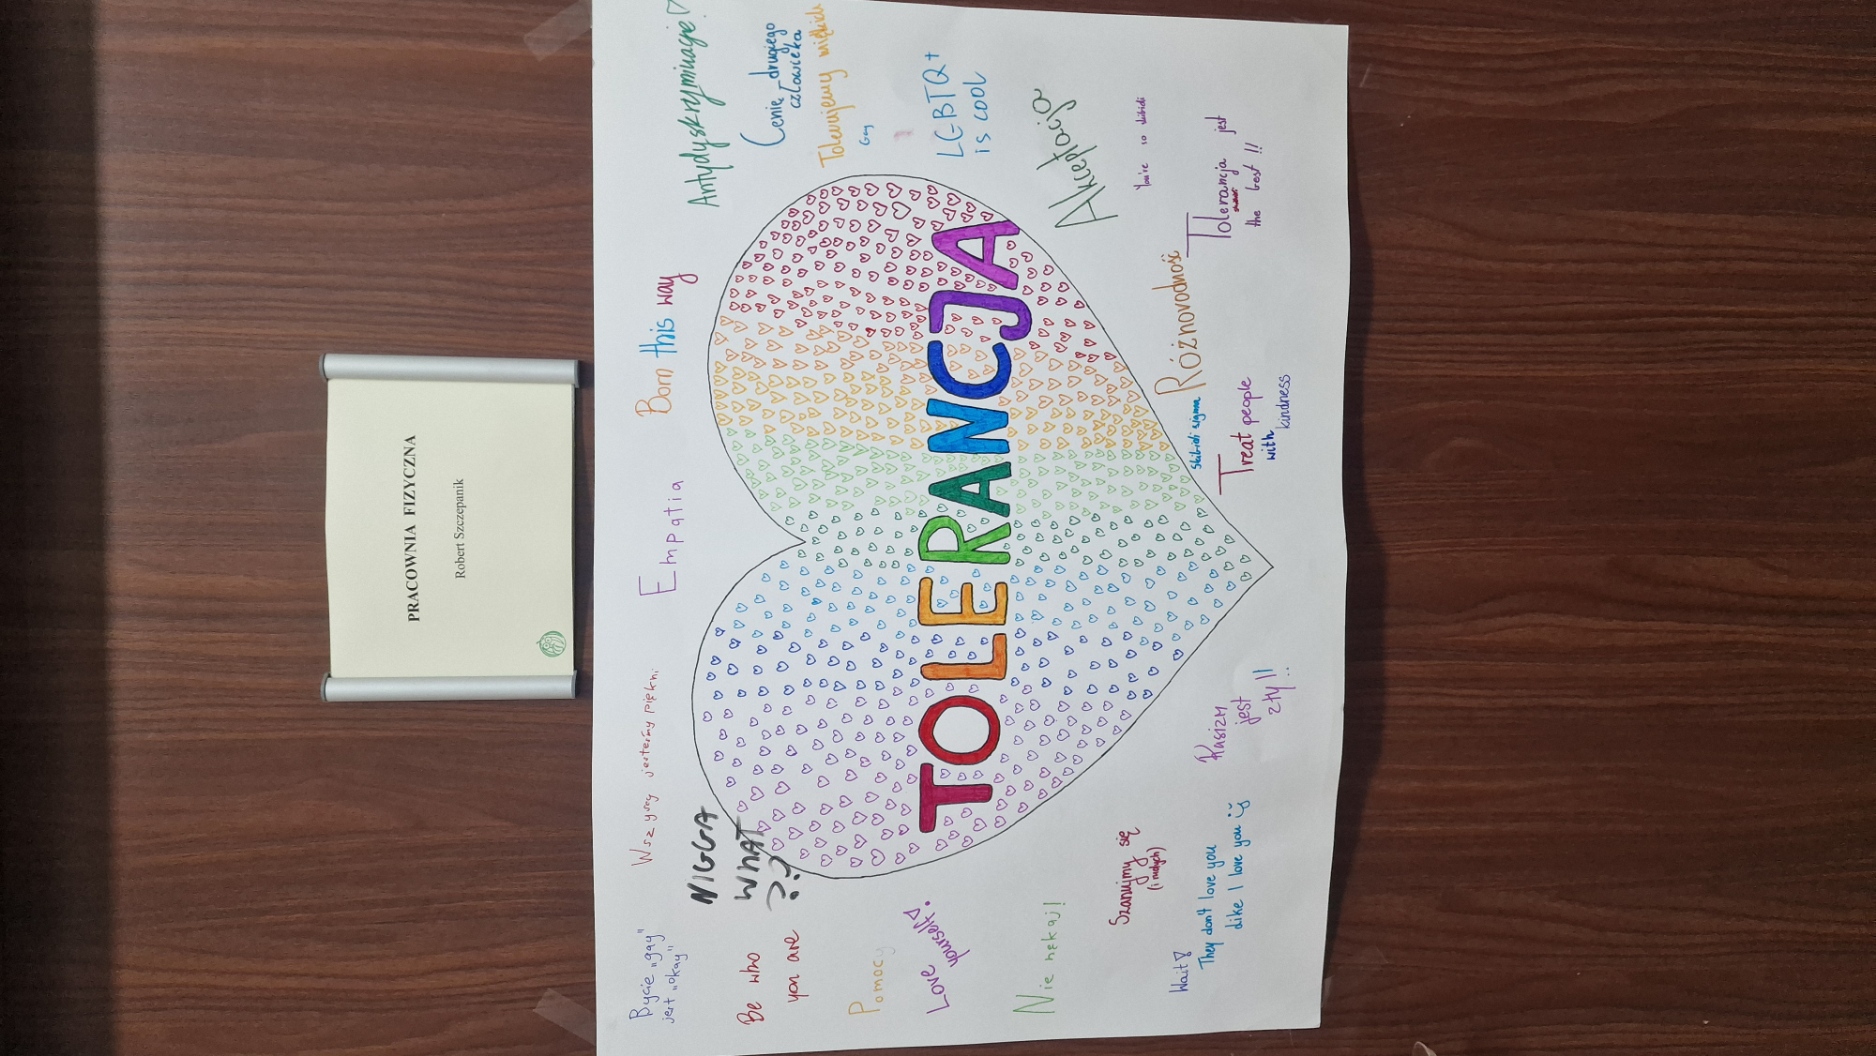 PRACOWNIA FIZYCZNA
Robert Szczepanik
Bycie „gay”
jest „okay”
Wszyscy jesteśmy piękni.
Empatia
Born this way
Antydyskryminacja
NIGGA
WHAT
??
Be who
you are
Cenię drugiego
człowieka
Tolerujemy
Gay
Pomocy
LGBTQ+
is cool
Love
yourself
TOLERANCJA
Nie hekaj!
Akceptacja
Szanujmy się
(i małych)
You're so skibidi
Wait
They don't love you
like I love you
Rasizm
jest
zły!!
skibidi sigma
Różnorodność
Treat people
with
kindness
Tolerancja jest
the best!!